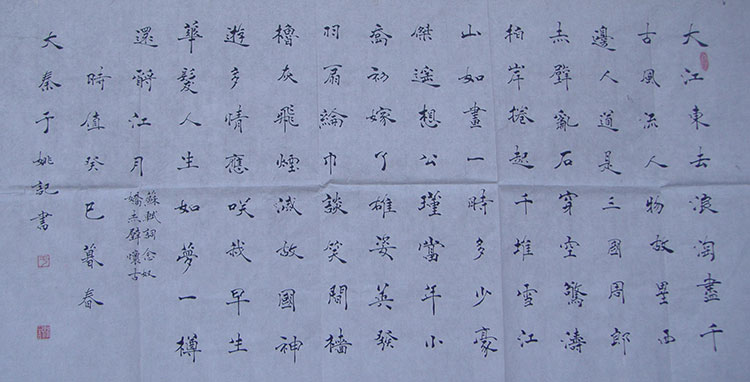 大江東去浪淘盡千
古風流人物故壘西
邊人道是三國周郎
赤壁亂石穿空驚濤
拍岸捲起千堆雪江
山如畫一時多少豪
傑遙想公瑾當年小
喬初嫁了雄姿英發
羽扇綸巾談笑間檣
櫓灰飛煙滅故國神
遊多情應咲我早生
華髮人生如夢一樽
還酹江月
蘇軾詞念奴
嬌赤壁懷古
時值癸巳暮春
大秦于姚記書